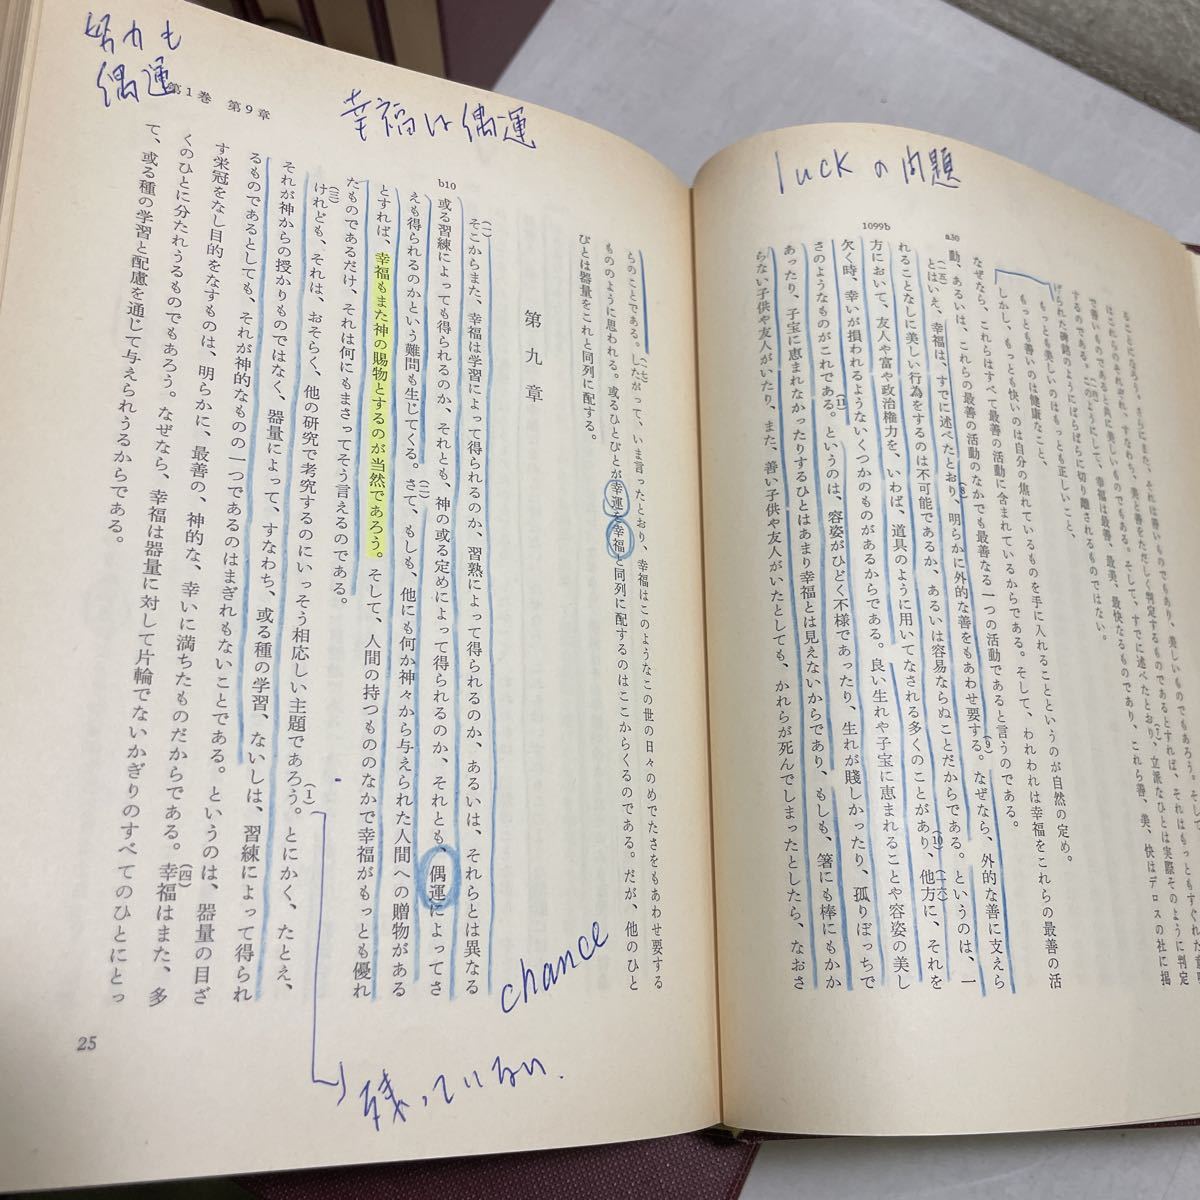 luckの問題
a30
1099b
ることになろう。さらにまた、それは善いものでもあり、美しいものでもあろう。そして
はこれらのそれぞれ、すなわち、美と善をただしく判定するものであるとすれば、それはもっともすぐれた意味
で善いものであると共に美しいものでもある。そして、すでに述べたとおり、立派なひとは実際そのように判定
するのである。このようにして、幸福は最善、最美、最快なるものであり、これら善、美、快はデロスの社に掲
げられた碑銘のようにばらばらに切り離されるものではない。
もっとも美しいのはもっとも正しいこと、
もっとも善いのは健康なこと、
しかし、もっとも快いのは自分の焦れているものを手に入れることというのが自然の定め。
なぜなら、これらはすべて最善の活動に含まれているからである。そして、われわれは幸福をこれらの最善の活
動、あるいは、これらの最善の活動のなかでも最善なる一つの活動であると言うのである。
とはいえ、幸福は、すでに述べたとおり、明らかに外的な善をもあわせ要する。なぜなら、外的な善に支えら
れることなしに美しい行為をするのは不可能であるか、あるいは容易ならぬことだからである。というのは、一
方において、友人や富や政治権力を、いわば、道具のように用いてなされる多くのことがあり、他方に、それを
欠く時、幸いが損われるようないくつかのものがあるからである。良い生れや子宝に恵まれることや容姿の美し
さのようなものがこれである。というのは、容姿がひどく不様であったり、生れが賤しかったり、孤りぼっちで
あったり、子宝に恵まれなかったりするひとはあまり幸福とは見えないからであり、もしも、箸にも棒にもかか
らない子供や友人がいたり、また、善い子供や友人がいたとしても、かれらが死んでしまったとしたら、なおさ
努力も
偶運
第1巻 第9章
幸福は偶運
らのことである。したがって、いま言ったとおり、幸福はこのようなこの世の日々のめでたさをもあわせ要する
もののように思われる。或るひとびとが幸運を幸福と同列に配するのはここからくるのである。だが、他のひと
びとは器量をこれと同列に配する。
第九章
b10
そこからまた、幸福は学習によって得られるのか、習熟によって得られるのか、あるいは、それらとは異なる
或る習練によっても得られるのか、それとも、神の或る定めによって得られるのか、それとも、偶運によってさ
えも得られるのかという難問も生じてくる。さて、もしも、他にも何か神々から与えられた人間への贈物がある
とすれば、幸福もまた神の賜物とするのが当然であろう。そして、人間の持つもののなかで幸福がもっとも優れ
たものであるだけ、それは何にもまさってそう言えるのである。
けれども、それは、おそらく、他の研究で考究するのにいっそう相応しい主題であろう。とにかく、たとえ、
それが神からの授かりものではなく、器量によって、すなわち、或る種の学習、ないしは、習練によって得られ
るものであるとしても、それが神的なものの一つであるのはまぎれもないことである。というのは、器量の目ざ
す栄冠をなし目的をなすものは、明らかに、最善の、神的な、幸いに満ちたものだからである。幸福はまた、多
くのひとに分たれうるものでもあろう。なぜなら、幸福は器量に対して片輪でないかぎりのすべてのひとにとっ
て、或る種の学習と配慮を通じて与えられうるからである。
chance
残っていない.
25